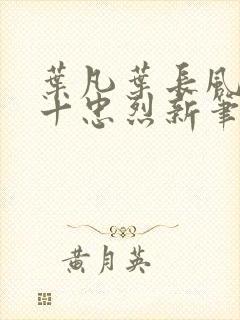 葉凡葉長風
十忠烈新筆
黃月英